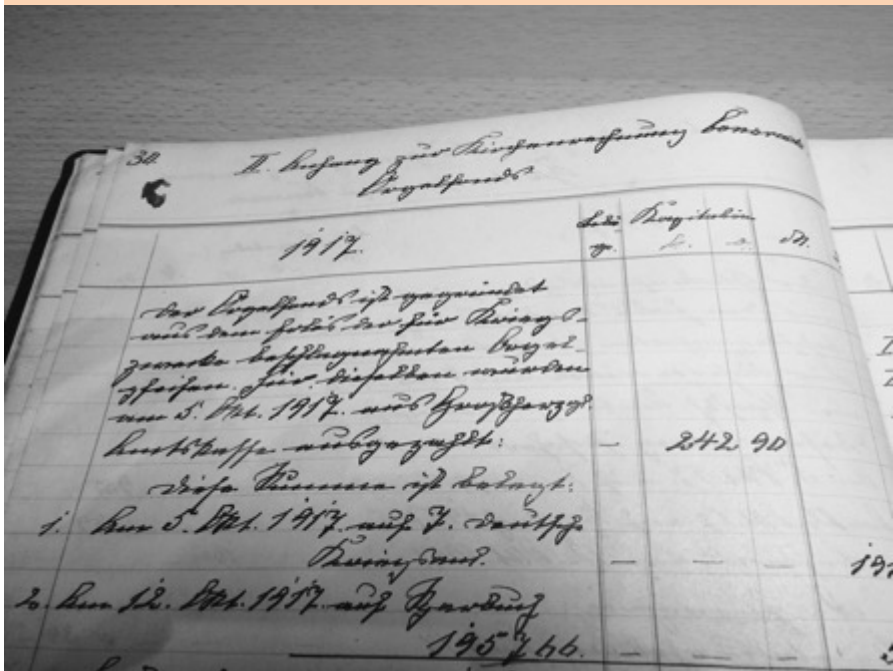 30.
II. Anhang zur Kirchenrechnung
Orgelfonds
1917.
Kapitalien
M.
Der Orgelfonds ist gegründet
aus dem Erlös der für Kriegs-
zwecke beschlagnahmten Orgel-
pfeifen. Für dieselben wurden
am 5. Okt. 1917. aus Großherzogl.
Amtskasse ausgezahlt: – 242 90
Diese Summe ist belegt:
1. Am 5. Okt. 1917. auf 7. Deutsche
Kriegsanl. – – –
2. Am 12. Okt. 1917. auf Sparbuch
195766. – – –